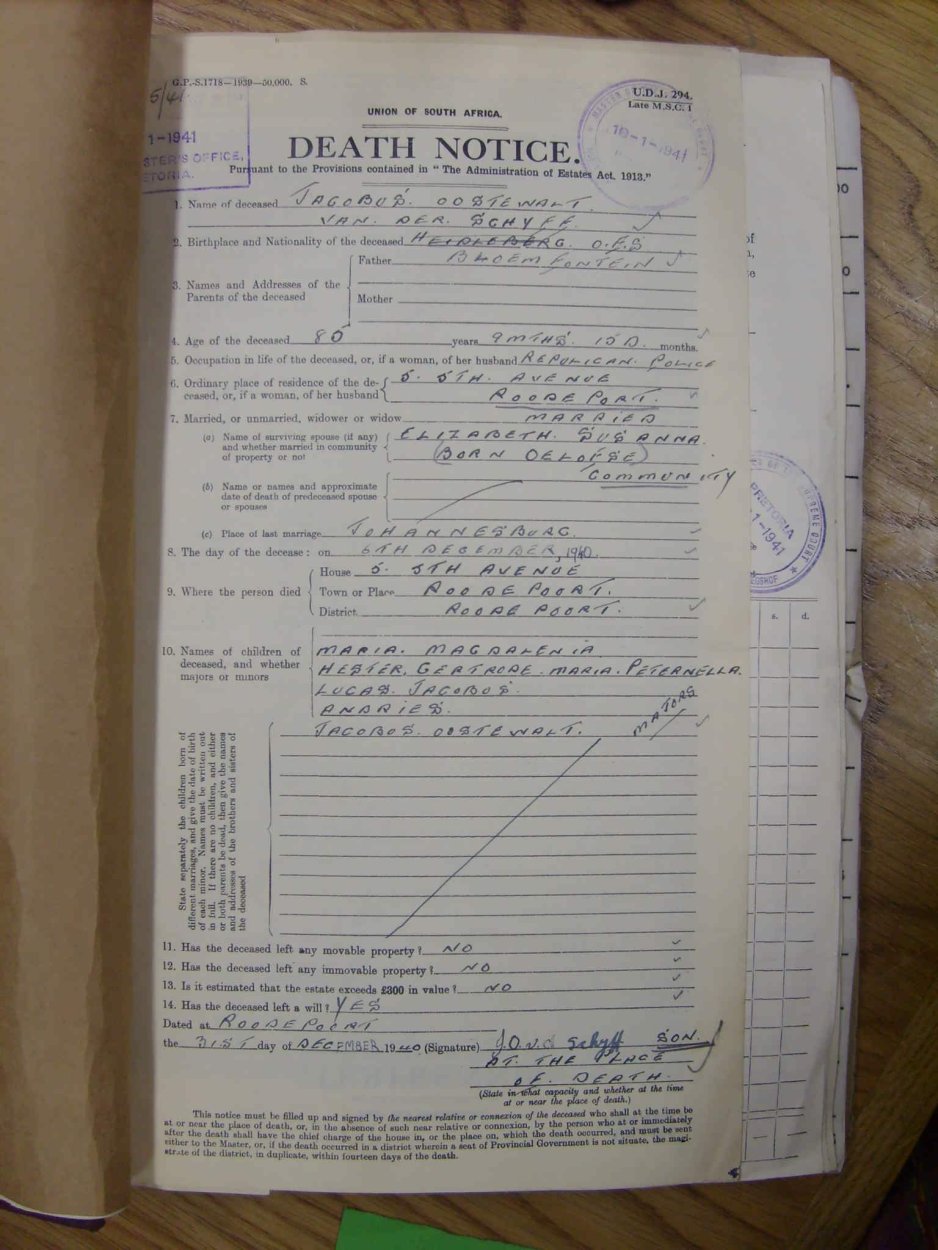 G.P.-S.1718—1939—50,000. S.
5/41
U.D.J. 294.
Late M.S.C. 1
UNION OF SOUTH AFRICA.
1-1941
STER'S OFFICE,
ETORIA.
10-1-1941
DEATH NOTICE.
Pursuant to the Provisions contained in "The Administration of Estates Act. 1913."
1. Name of deceased JACOBUS. OOSTEWALT.
VAN. DER. SCHYFF.
2. Birthplace and Nationality of the deceased HEIDLEBERG. O.F.S
BLOEMFONTEIN
3. Names and Addresses of the Parents of the deceased
Father
Mother
4. Age of the deceased 80 years 9 MTHS. 15 D. months.
5. Occupation in life of the deceased, or, if a woman, of her husband REPUBLICAN. POLICE
6. Ordinary place of residence of the de-
ceased, or, if a woman, of her husband
5. 5TH. AVENUE
ROODEPORT.
7. Married, or unmarried, widower or widow MARRIED
(a) Name of surviving spouse (if any)
and whether married in community
of property or not
ELIZABETH. SUSANNA.
(BORN OELOFSE)
COMMUNITY
(b) Name or names and approximate
date of death of predeceased spouse
or spouses
(c) Place of last marriage JOHANNESBURG.
8. The day of the decease: on 6TH DECEMBER, 1940.
9. Where the person died
House 5. 5TH AVENUE
Town or Place ROODEPOORT.
District ROODEPOORT.
10. Names of children of
deceased, and whether
majors or minors
MARIA. MAGDALENIA
HESTER. GERTRUDE. MARIA. PETERNELLA.
LUCAS. JACOBUS.
ANDRIES.
JACOBUS. OOSTEWALT.
MAJORS
State separately the children born of
different marriages, and give the date of birth
of each minor. Names must be written out
in full. If there are no children, and either
or both parents be dead, then give the names
and addresses of the brothers and sisters of
the deceased
11. Has the deceased left any movable property? NO
12. Has the deceased left any immovable property? NO
13. Is it estimated that the estate exceeds £300 in value? NO
14. Has the deceased left a will? YES
Dated at ROODEPOORT
the 31ST day of DECEMBER 1940 (Signature) J.O.v.d Schyff SON.
AT THE PLACE
OF. DEATH.
(State in what capacity and whether at the time
at or near the place of death.)
This notice must be filled up and signed by the nearest relative or connexion of the deceased who shall at the time be
at or near the place of death, or, in the absence of such near relative or connexion, by the person who at or immediately
after the death shall have the chief charge of the house in, or the place on, which the death occurred, and must be sent
either to the Master, or, if the death occurred in a district wherein a seat of Provincial Government is not situate, the magi-
strate of the district, in duplicate, within fourteen days of the death.
PRETORIA
1-1941
SUPREME COURT
s. d.